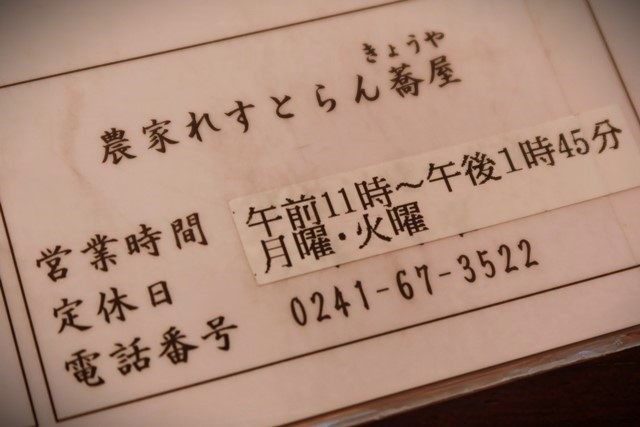 きょうや
農家れすとらん蕎屋
営業時間 午前11時～午後1時45分
定休日 月曜・火曜
電話番号 0241-67-3522